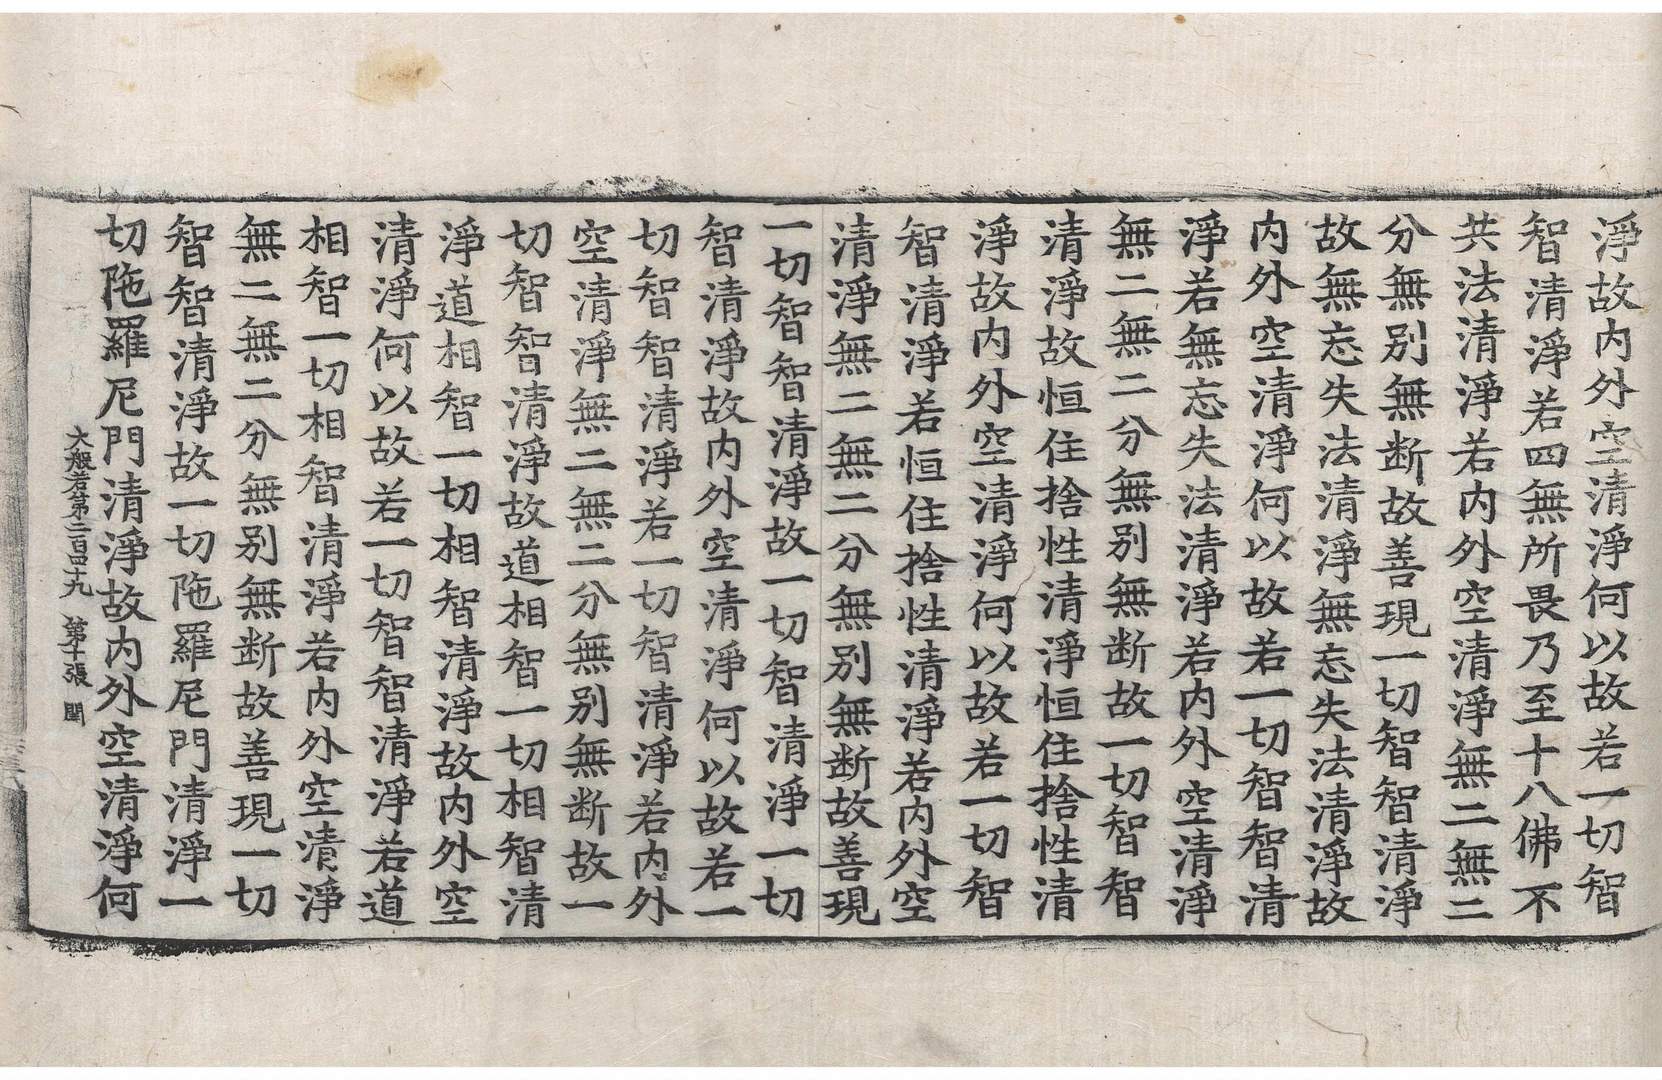 淨故内外空清淨何以故若一切智
智清淨若四無所畏乃至十八佛不
共法清淨若内外空清淨無二無二
分無別無断故善現一切智智清淨
故無忘失法清淨無忘失法清淨故
内外空清淨何以故若一切智智清
淨若無忘失法清淨若内外空清淨
無二無二分無別無断故一切智智
清淨故恒住捨性清淨恒住捨性清
淨故内外空清淨何以故若一切智
智清淨若恒住捨性清淨若内外空
清淨無二無二分無別無断故善現
一切智智清淨故一切智清淨一切
智清淨故内外空清淨何以故若一
切智智清淨若一切智清淨若内外
空清淨無二無二分無別無断故一
切智智清淨故道相智一切相智清
淨道相智一切相智清淨故内外空
清淨何以故若一切智智清淨若道
相智一切相智清淨若内外空清淨
無二無二分無別無断故善現一切
智智清淨故一切陁羅尼門清淨一
切陁羅尼門清淨故内外空清淨何
大般若第二百四十九 第十張 閏